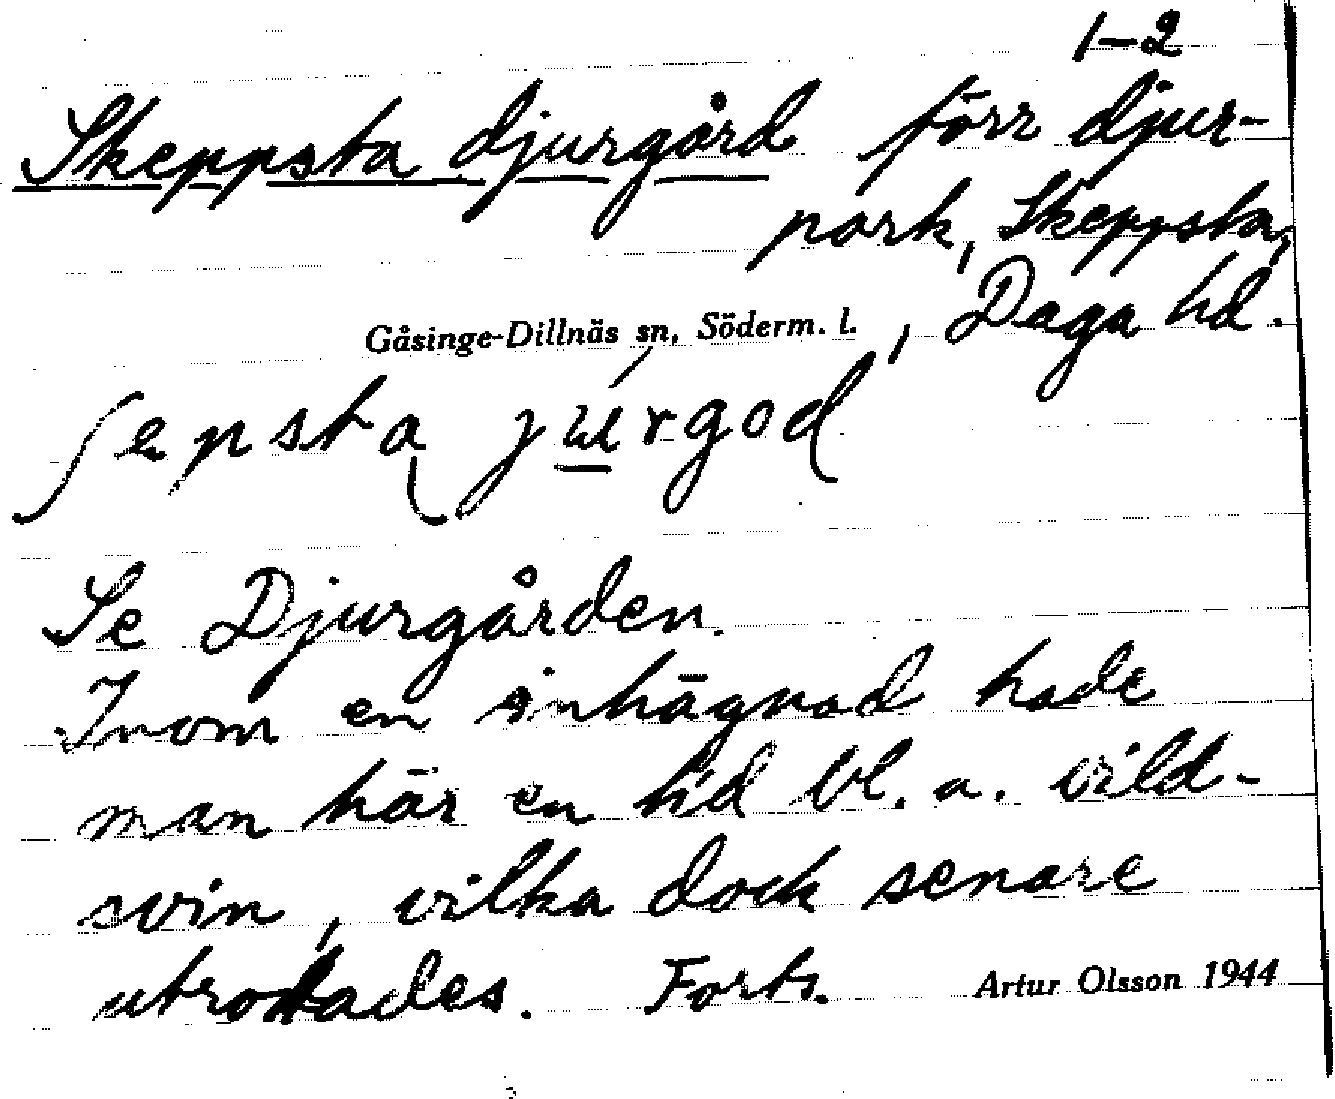 1-2
Skeppsta djurgård förr djur-
park, Skeppsta,
Gåsinge-Dillnäs sn, Söderm. l., Daga hd.
ʃepsta jurgod
Se Djurgården.
Inom en inhägnad hade
man här en tid bl. a. vild-
svin, vilka dock senare
utrotades. Forts.
Artur Olsson 1944